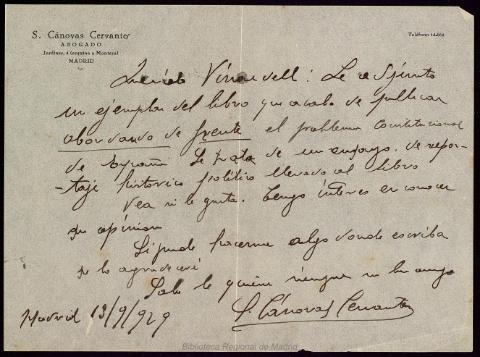 S. Cánovas Cervantes
ABOGADO
Jardines, 4 (esquina a Montera)
MADRID
Teléfono 14.604
Querido Vinardell: Le adjunto
un ejemplar del libro que acaba de publicar
abordando de frente el problema Constitucional
de España Se trata de un ensayo de repor-
taje histórico político llevado al libro
Vea si le gusta. Tengo interés en conocer
su opinión
Si puede hacerme algo donde escriba
se lo agradeceré
Sabe le quiere siempre su buen amigo
S. Cánovas Cervantes
Madrid 13/9/929
Biblioteca Regional de Madrid